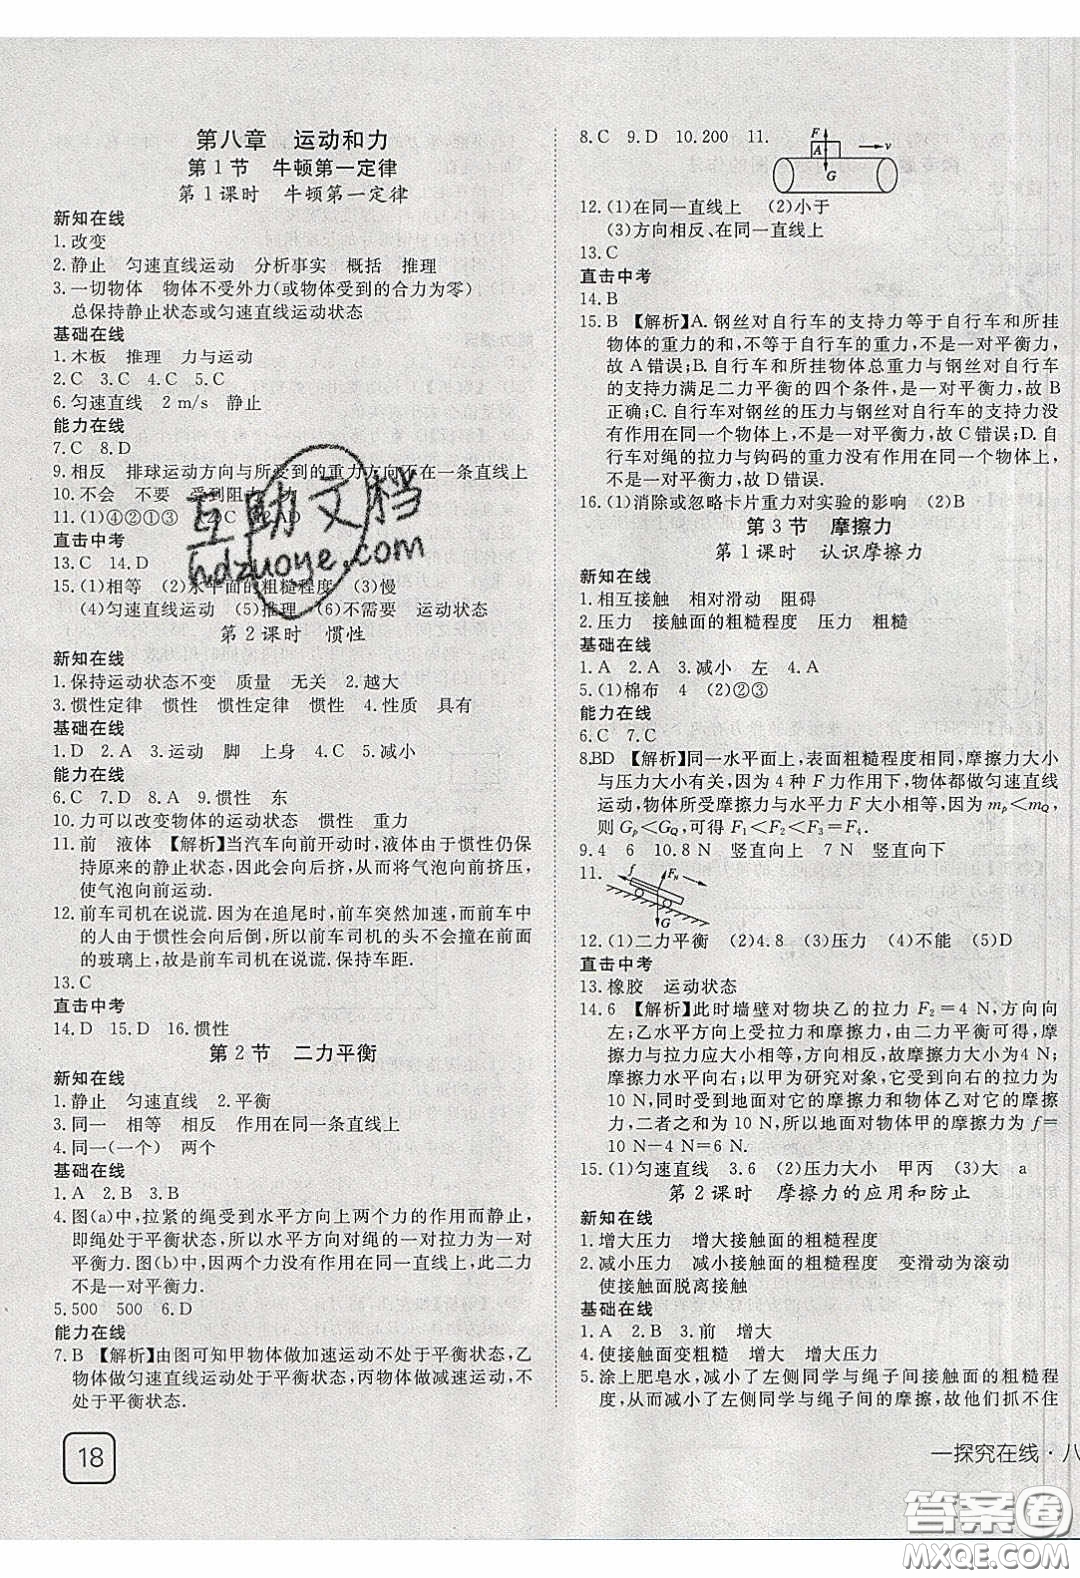 第八章　运动和力
第1节　牛顿第一定律
第1课时　牛顿第一定律
新知在线
1.改变
2.静止　匀速直线运动　分析事实　概括　推理
3.一切物体　物体不受外力(或物体受到的合力为零)
总保持静止状态或匀速直线运动状态
基础在线
1.木板　推理　力与运动
2.C　3.C　4.C　5.C
6.匀速直线　2 m/s　静止
能力在线
7.C　8.D
9.相反　排球运动方向与所受到的重力方向不在一条直线上
10.不会　不要　受到阻力
11.(1)④②①③　(2)C　AD
直击中考
13.C　14.D
15.(1)相等　(2)水平面的粗糙程度　(3)慢
(4)匀速直线运动　(5)推理　(6)不需要　运动状态
第2课时　惯性
新知在线
1.保持运动状态不变　质量　无关　2.越大
3.惯性定律　惯性　惯性定律　惯性　4.性质　具有
基础在线
1.D　2.A　3.运动　脚　上身　4.C　5.减小
能力在线
6.C　7.D　8.A　9.惯性　东
10.力可以改变物体的运动状态　惯性　重力
11.前　液体　【解析】当汽车向前开动时,液体由于惯性仍保
持原来的静止状态,因此会向后挤,从而将气泡向前挤压,
使气泡向前运动.
12.前车司机在说谎.因为在追尾时,前车突然加速,而前车中
的人由于惯性会向后倒,所以前车司机的头不会撞在前面
的玻璃上,故是前车司机在说谎.保持车距.
13.C
直击中考
14.D　15.D　16.惯性
第2节　二力平衡
新知在线
1.静止　匀速直线　2.平衡
3.同一　相等　相反　作用在同一条直线上
4.同一(一个)　两个
基础在线
1.A　2.B　3.B
4.图(a)中,拉紧的绳受到水平方向上两个力的作用而静止,
即绳处于平衡状态,所以水平方向对绳的一对拉力为一对
平衡力.图(b)中,因两个力没有作用在同一直线上,此二力
不是一对平衡力.
5.500　500　6.D
能力在线
7.B　【解析】由图可知甲物体做加速运动不处于平衡状态,乙
物体做匀速直线运动处于平衡状态,丙物体做减速运动,不
处于平衡状态.
18
8.C　9.D　10.200　11.
F
A
v
G
12.(1)在同一直线上　(2)小于
(3)方向相反、在同一直线上
13.C
直击中考
14.B
15.B　【解析】A.钢丝对自行车的支持力等于自行车和所挂
物体的重力的和,不等于自行车的重力,不是一对平衡力,
故A错误;B.自行车和所挂物体总重力与钢丝对自行车
的支持力满足二力平衡的四个条件,是一对平衡力,故B
正确;C.自行车对钢丝的压力与钢丝对自行车的支持力没
有作用在同一个物体上,不是一对平衡力,故C错误;D.自
行车对绳的拉力与钩码的重力不是作用在同一个物体上,
不是一对平衡力,故D错误.
16.(1)消除或忽略卡片重力对实验的影响　(2)B
第3节　摩擦力
第1课时　认识摩擦力
新知在线
1.相互接触　相对滑动　阻碍
2.压力　接触面的粗糙程度　压力　粗糙
基础在线
1.A　2.A　3.减小　左　4.A
5.(1)棉布　4　(2)②③
能力在线
6.C　7.C
8.BD　【解析】同一水平面上,表面粗糙程度相同,摩擦力大小
与压力大小有关,因为4种F力作用下,物体都做匀速直线
运动,物体所受摩擦力与水平力F大小相等,因为mP<mQ,
则GP<GQ,可得F1<F2<F3<F4.
9.4　6　10.8 N　竖直向上　7 N　竖直向下
11.
f
FN
G
12.(1)二力平衡　(2)4.8　(3)压力　(4)不能　(5)D
直击中考
13.橡胶　运动状态
14.6　【解析】此时墙壁对物块乙的拉力F2=4 N,方向向
左;乙水平方向上受拉力和摩擦力,由二力平衡可得,摩擦
力与拉力应大小相等,方向相反,故摩擦力大小为4 N;摩
擦力水平向右;以甲为研究对象,它受到向右的拉力为
10 N,同时受到地面对它的摩擦力和物体乙对它的摩擦
力,二者之和为10 N,所以地面对物体甲的摩擦力f=
10 N-4 N=6 N.
15.(1)匀速直线　3.6　(2)压力大小　甲丙　(3)大　a
第2课时　摩擦力的应用和防止
新知在线
1.增大压力　增大接触面的粗糙程度
2.减小压力　减小接触面的粗糙程度　变滑动为滚动
使接触面脱离接触
基础在线
1.A　2.B　3.前　增大
4.使接触面变粗糙　增大　增大压力
5.涂上肥皂水,减小了左侧同学与绳子间接触面的粗糙程
度,从而减小了左侧同学与绳子间的摩擦,故他们抓不住
一探究在线·八
互助文档
hdzuoye.com
答案圈
MXQE.COM